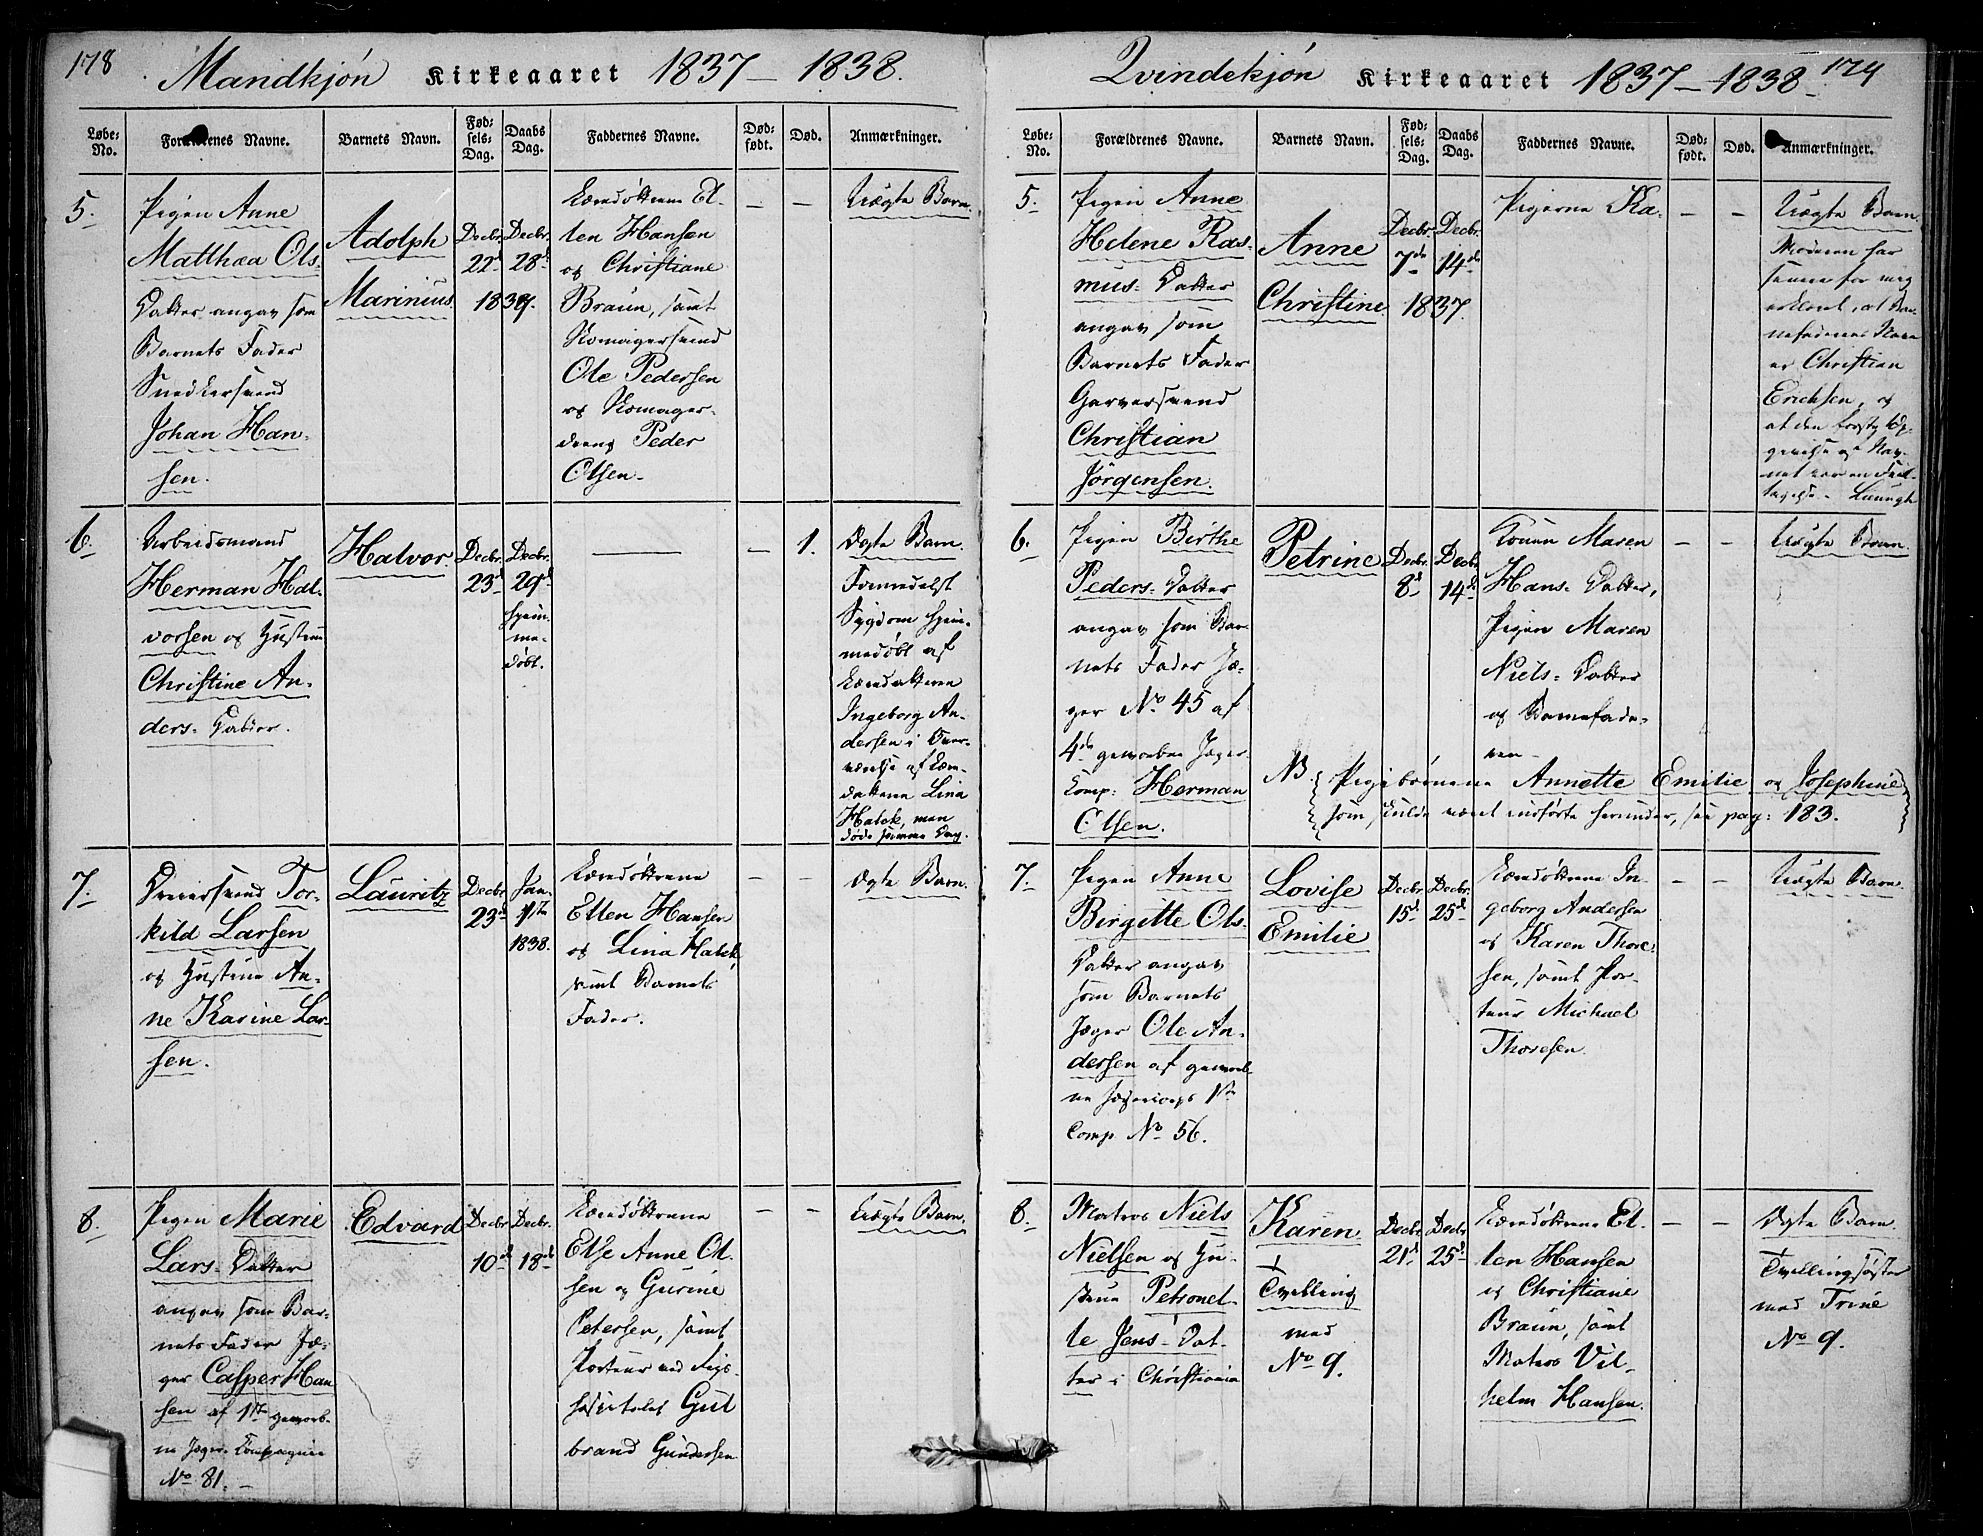 178
Mandkjön Kirkeaaret 1837 – 1838.
Løbe-No. Forældrenes Navne. Barnets Navn. Fødsels-Dag. Daabs Dag. Faddernes Navne. Død-født. Død. Anmærkninger.
5.
Pigen Anne
Matthæa Ols-
Datter angav som
Barnets Fader
Snedkersvend
Johan Han-
sen.
Adolph
Marinius
Decbr.
22d
Decbr.
28d
1837.
Læredöttrene El-
len Hansen
og Christiane
Braun, samt
Skomagersvend
Ole Pedersen
og Skomager-
dreng Peder
Olsen.
— —
Uægte Barn.
6.
Arbeidsmand
Herman Hal-
vorsen og Hustrue
Christine An-
ders-Datter.
Halvor.
Decbr.
23d
Decbr.
29d
hjem-
me-
döbt.
—
— 1.
Ægte Barn.
Formedelst
Sygdom hjem-
medöbt af
Læredatteren
Ingeborg An-
dersen i Over-
værelse af Lære-
datteren Lina
Halck, men
döde samme Dag.
7.
Dreiersvend Tor-
kild Larsen
og Hustrue An-
ne Karine Lar-
sen.
Lauritz
Decbr.
23d
Jan.
1ste
1838.
Læredöttrene
Ellen Hansen
og Lina Halck,
samt Barnets
Fader.
— —
Ægte Barn.
8.
Pigen Marie
Lars-Datter
angav som Bar-
nets Fader Jæ-
ger Casper Han-
sen af 1ste gevorb-
ne Jæger-Compagnie
No 81.
Edvard
Decbr.
10d
Decbr.
18d
Læredöttrene
Else Anne Ol-
sen og Gurine
Petersen, samt
Porteur ved Rigs-
hospitalet Gul
brand Gundersen
— —
Uægte Barn.
179
Qvindekjön Kirkeaaret 1837 – 1838
Løbe-No. Forældrenes Navne. Barnets Navn. Fødsels-Dag. Daabs Dag. Faddernes Navne. Død-født. Død. Anmærkninger.
5.
Pigen Anne
Helene Ras-
mus-Datter
angav som
Barnets Fader
Garversvend
Christian
Jörgensen.
Anne
Christine
Decbr.
7de
Decbr.
14de
1837.
Pigerne Ka-
— —
Uægte Barn.
Moderen har
senere for mig
erklæret, at Bar-
nefaderens Navn
er Christian
Erichsen, og
at den første Op-
givelse af Nav-
net var en Feil-
tagelse.
6.
Pigen Birthe
Peders-Datter
angav som Bar-
nets Fader Jæ-
ger No 45 af
4de gevorbne Jæger-
Comp: Herman
Olsen.
Petrine
Decbr.
8d
Decbr.
14d
Konen Maren
Hans-Datter,
Pigen Maren
Niels-Datter
og Barnefade-
ren
— —
Uægte Barn.
NB. Pigebörnene Annette Emilie og Josephine
som skulde været indførte herunder, see pag: 183.
7.
Pigen Anne
Birgitte Ols-
Datter angav
som Barnets
Jæger Ole An-
dersen af gevorb-
ne Jægercorps 1ste
Comp. No 56.
Lovise
Emilie
Decbr.
15d
Decbr.
25d
Læredöttrene In-
geborg Andersen
og Karen Thore-
sen, samt Por-
teur Michael
Thoresen.
— —
Uægte Barn.
8.
Matros Niels
Nielsen og Hu-
strue Petronel-
le Jens-Dat-
ter i Christiania
Karen
Tvilling
med
No 9.
Decbr.
21d
Decbr.
25d
Læredöttrene El-
len Hansen
og Christiane
Braun, samt
Matros Vil-
helm Hansen.
— —
Ægte Barn.
Tvillingsöster
med Trine
No 9.